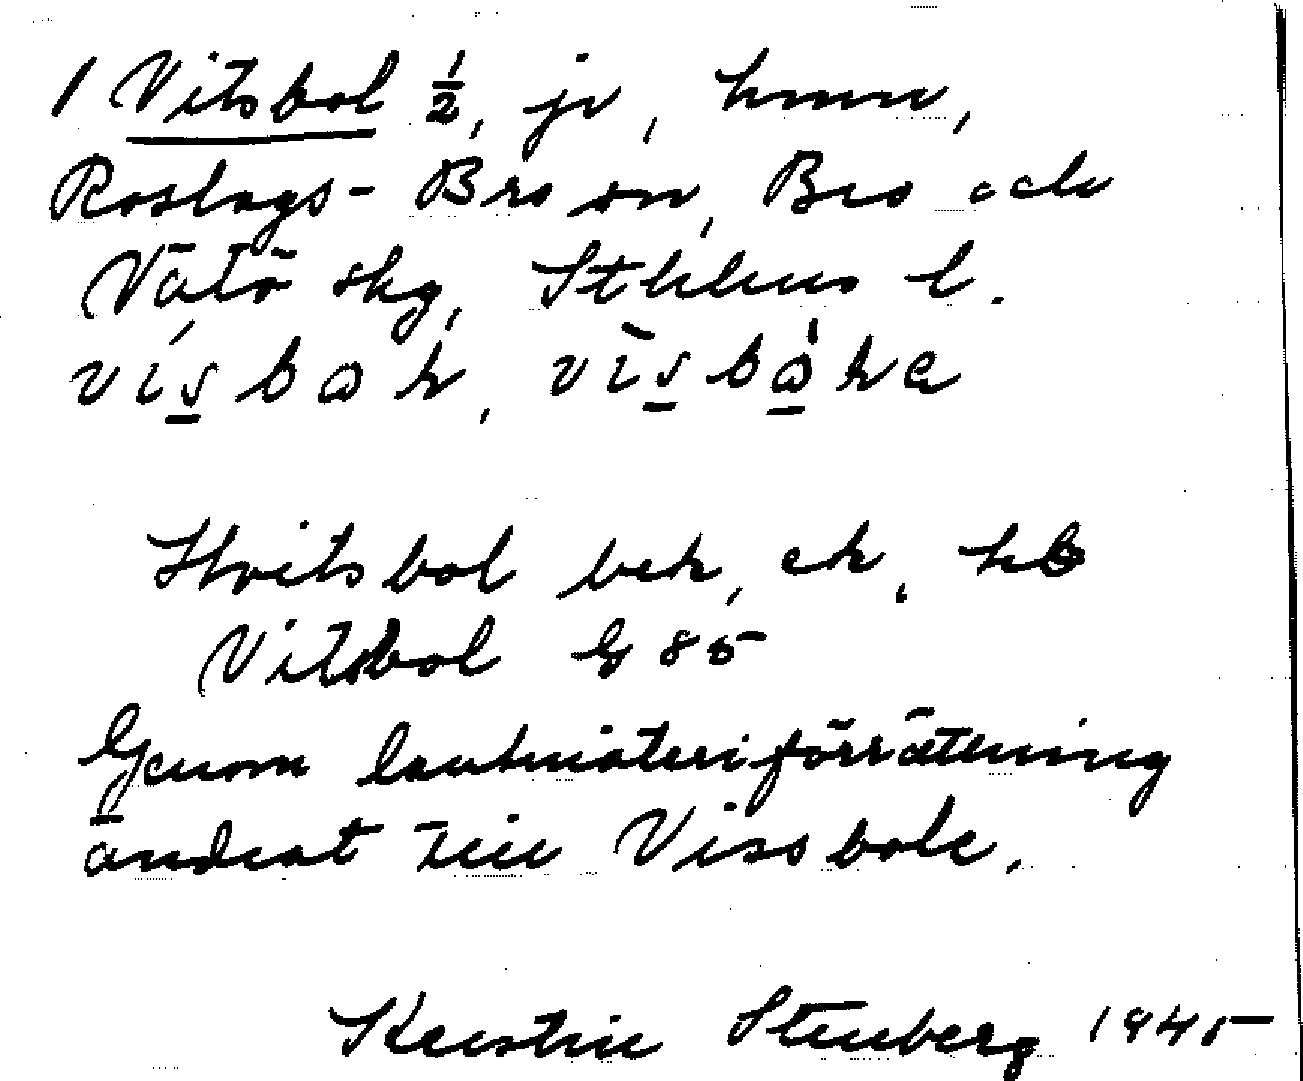 1 Vitsbol ½, jv, hmn,
Roslags-Bro sn, Bro och
Vätö skg, Sthlms l.
Hvitsbol bek, ek, hb
Vitsbol G 85
Genom lantmäteriförrättning
ändrat till Vissbole.
Kerstin Stenberg 1945